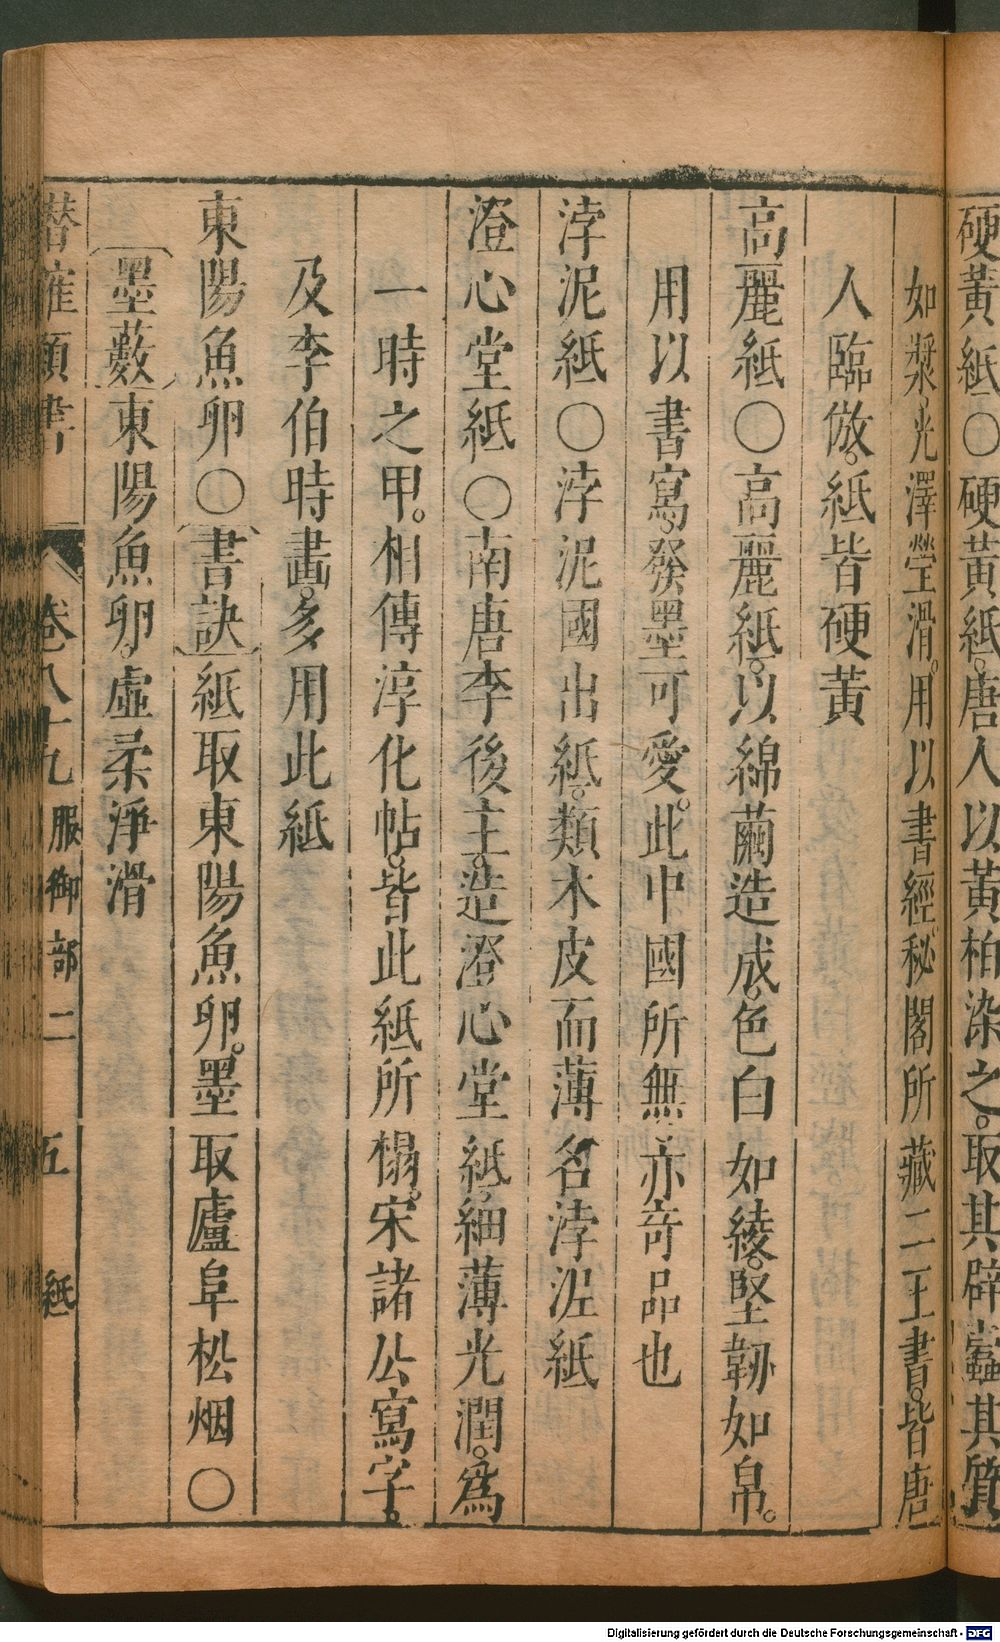 硬黃紙〇硬黃紙。唐人以黃柏染之。取其辟蠹其質
如漿。光澤瑩滑。用以書經。秘閣所藏二王書。皆唐
人臨倣。紙皆硬黃
高麗紙〇高麗紙。以綿繭造成。色白如綾。堅韌如帛。
用以書寫。發墨可愛。此中國所無。亦奇品也
浡泥紙〇浡泥國出紙。類木皮而薄名浡泥紙
澄心堂紙〇南唐李後主。造澄心堂紙。細薄光潤。爲
一時之甲。相傳淳化帖。皆此紙所榻。宋諸公寫字。
及李伯時畵。多用此紙
東陽魚卵〇書訣紙取東陽魚卵。墨取廬阜松烟〇
墨藪東陽魚卵。虛柔淨滑
潛確類書 卷八十九 服御部二 五 紙
Digitalisierung gefördert durch die Deutsche Forschungsgemeinschaft - DFG